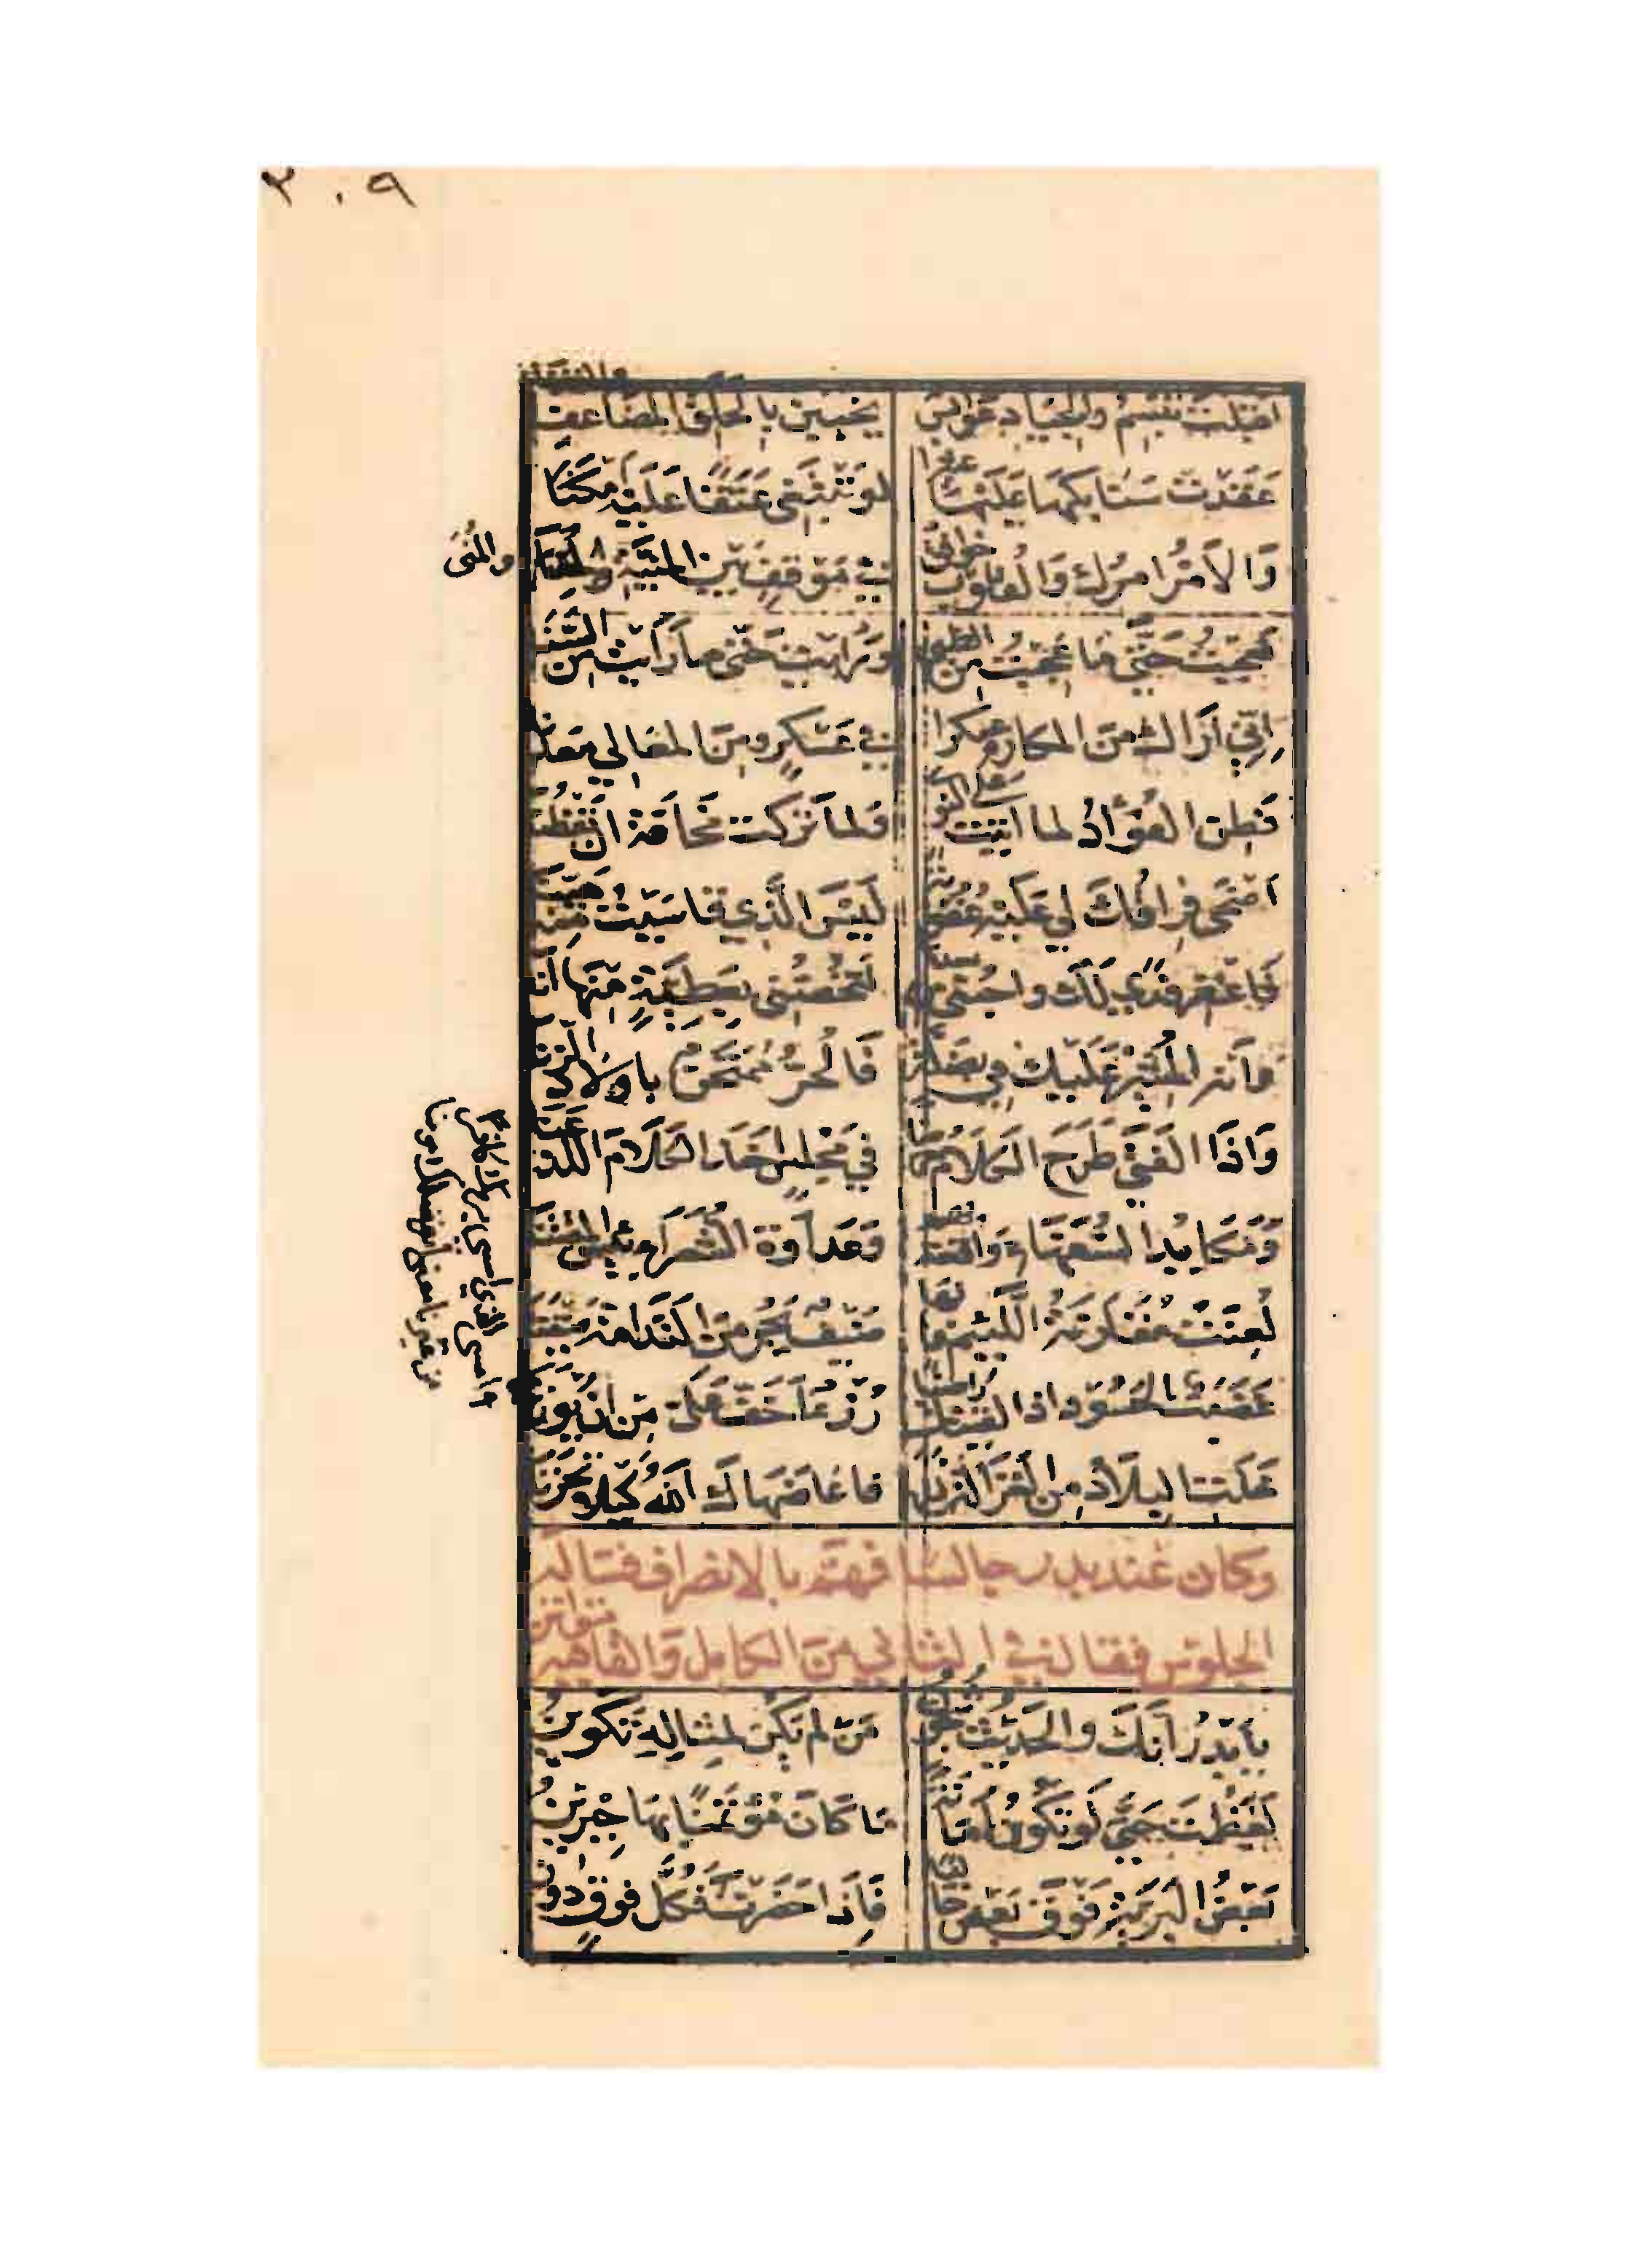 ٣٠٩
أقبلت تبسم والجياد عوابس يخببن بالحلق المضاعف والقنا
عقدت سنابكها عليها عثيرا لو تبتغي عنقا عليه أمكنا
والأمر أمرك والقلوب خوافق في موقف بين المنية والمنى
والمنى
فعجبت حتى ما عجبت من الظبى ورأيت حتى ما رأيت من السنا
إني أراك من المكارم عسكرا في عسكر ومن المعالي معدنا
فطن الفؤاد لما أتيت على النوى ولما تركت مخافة أن تفطنا
أضحى فراقك لي عليه عقوبة ليس الذي قاسيت منه هينا
فاغفر فدى لك واحبني من بعدها لتخصني بعطية منها أنا
وانه المشير عليك في بضلة فالحر ممتحن بأولاد الزنا
وإذا الفتى طرح الكلام معرضا في مجلس أخذ الكلام اللذ عنا
ومكايد السفهاء واقعة بهم وعداوة الشعراء بئس المقتنى
لعنت مقارنة اللئيم فإنها ضيف يجر من الندامة ضيفنا
غضب الحسود إذا لقيتك راضيا رزء أخف علي من أن يوزنا
أمسى الذي أمسى بربك كافرا
من غيرنا معنا بفضلك مؤمنا
خلت البلاد من الغزالة ليلها فأعاضهاك الله كيلا تحزنا
وكان عند بدر جالسا فهم بالانصراف فسأله
الجلوس فقال في الثاني من الكامل والقافية متواتر
يا بدر إنك والحديث شجون من لم يكن لمثاله تكوين
لعظمت حتى لو تكون أمانة ما كان مؤتمنا بها جبرين
بعض البرية فوق بعض خاليا فإذا حضرت فكل فوق دون